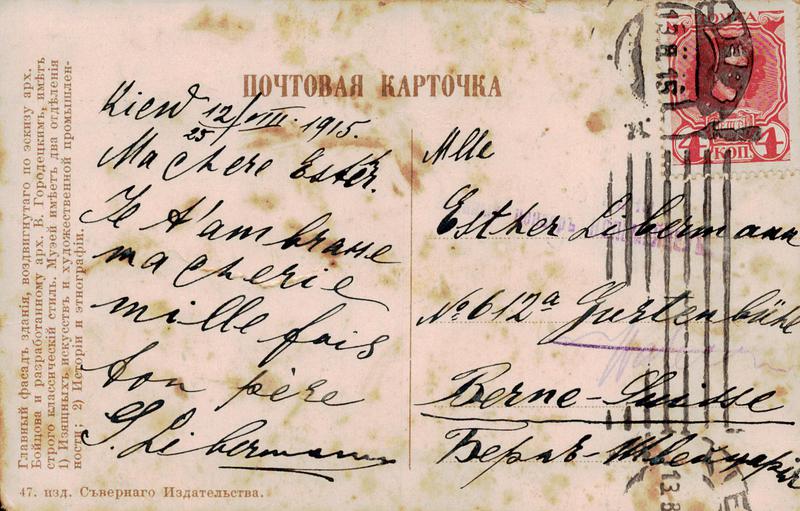 Главный фасадъ зданія, воздвигнутаго по эскизу арх.
Бойцова и разработанному арх. В. Городецкимъ, имѣетъ
строго классическій стиль. Музей имѣетъ два отдѣленія
1) Изящныхъ искусствъ и художественной промышлен-
ности; 2) Исторіи и этнографіи.
47. изд. Сѣвернаго Издательства.
ПОЧТОВАЯ КАРТОЧКА
Kiew 12/25 VIII. 1915.
Ma chère Esther.
Je t'ambrasse
ma cherie
mille fois
ton père
S. Libermann
Mlle
Esther Libermann
№ 612a Gurtenbühl
Berne-Suisse
Бернъ-Швейцарія
ПОЧТА
4 КОП. 4
13.8.15
13.8